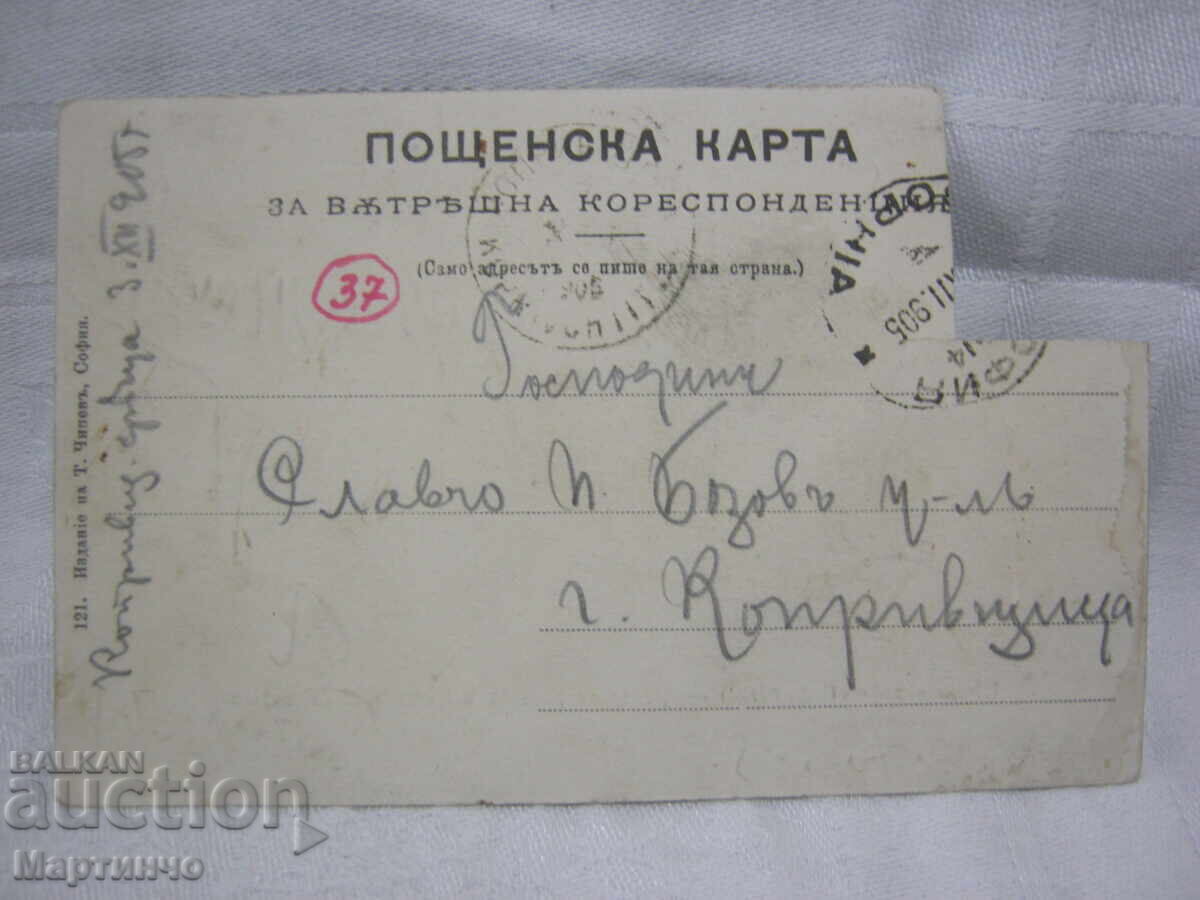 ПОЩЕНСКА КАРТА
ЗА ВѪТРѢШНА КОРЕСПОНДЕНЦИЯ
(Само адресътъ се пише на тая страна.)
37
СОФИЯ
XII.905
SOPHIA
905
Господинъ
Славчо П. Бозовъ у-лъ
г. Копривщица
121. Издание на Т. Чиповъ, София.
3.XII 905 г.
BALKAN
auction
Мартинчо